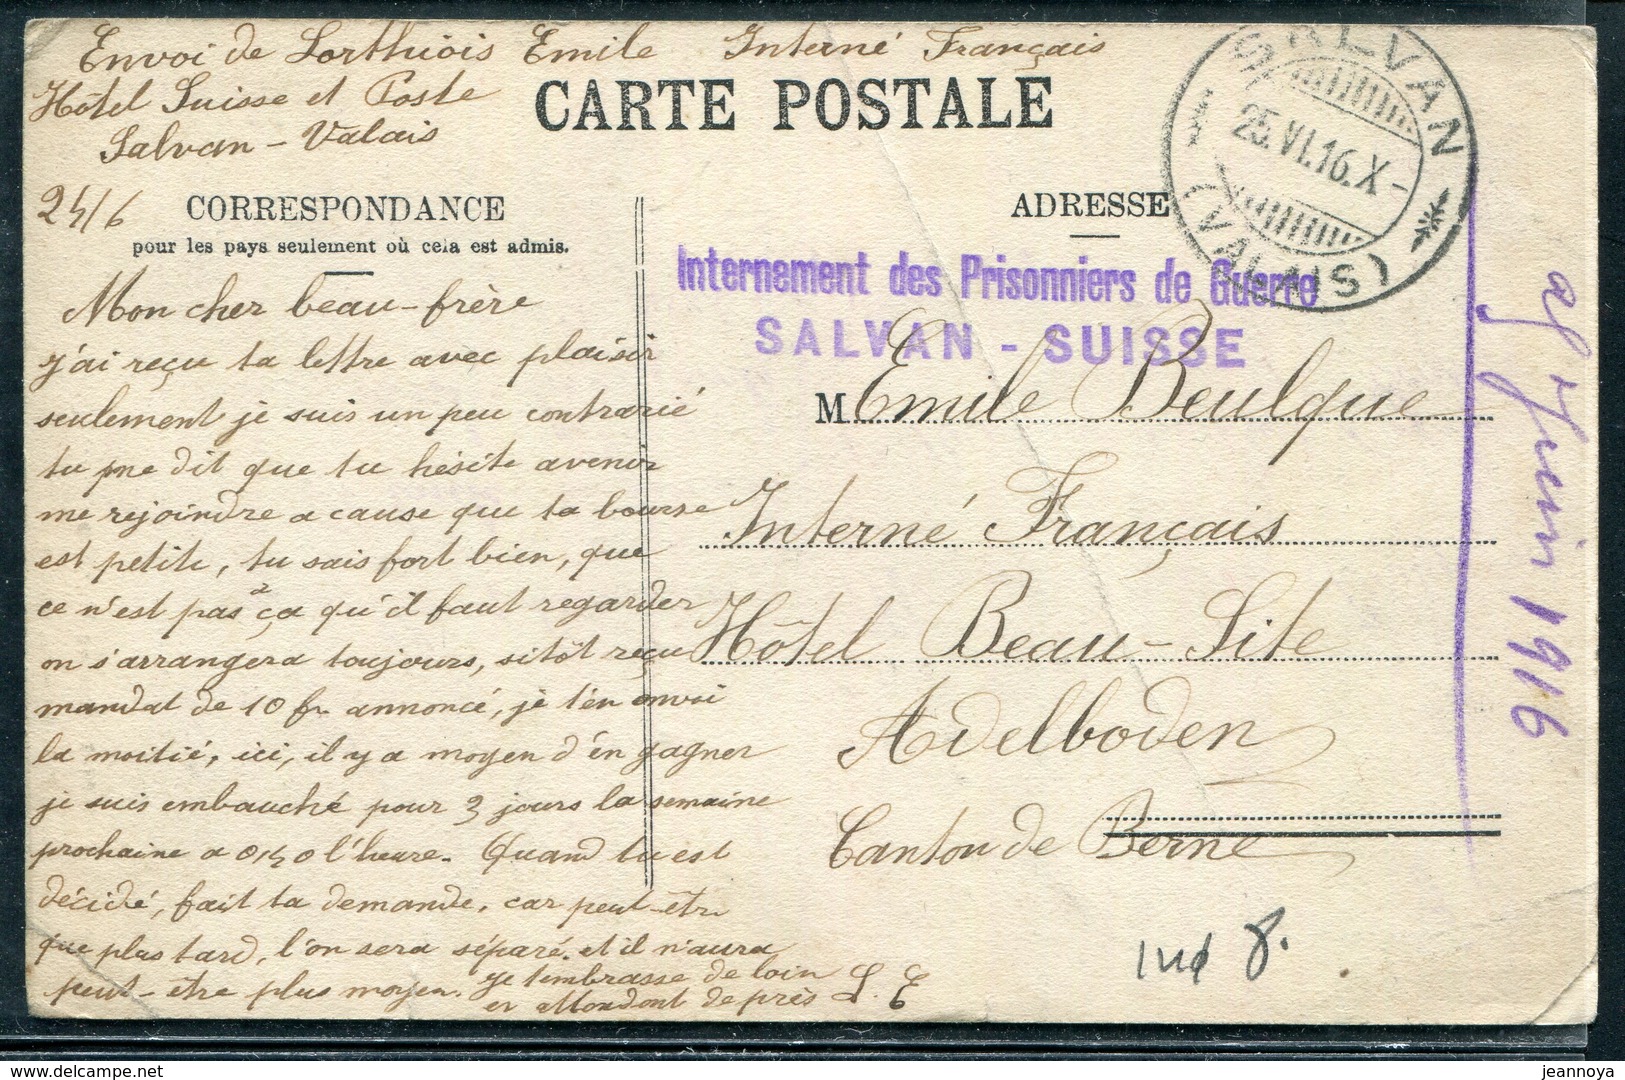 Envoi de Lorthiois Emile Interné Français
Hôtel Suisse et Poste
Salvan - Valais
CARTE POSTALE
SALVAN
25.VI.16.X-
(VALAIS)
24/6
CORRESPONDANCE
pour les pays seulement où cela est admis.
ADRESSE
Internement des Prisonniers de Guerre
SALVAN - SUISSE
Mon cher beau-frère
j'ai reçu ta lettre avec plaisir
seulement je suis un peu contrarié
tu me dit que tu hésite a venir
me rejoindre a cause que ta bourse
est petite, tu sais fort bien, que
ce n'est pas à ça qu'il faut regarder
on s'arrangera toujours, sitôt reçu
mandat de 10 fr annoncé, je t'en envoi
la moitié, ici, il y a moyen d'en gagner
je suis embauché pour 3 jours la semaine
prochaine a 0,40 l'heure. Quand tu est
décidé, fait ta demande, car peut-être
que plus tard, l'on sera séparé et il n'aura
peut-être plus moyen. Je t'embrasse de loin
en attendant de près L. E
M Emile Beulque
Interné Français
Hôtel Beau-Site
Adelboden
Canton de Berne
Juin 1916
8.
jeannoya